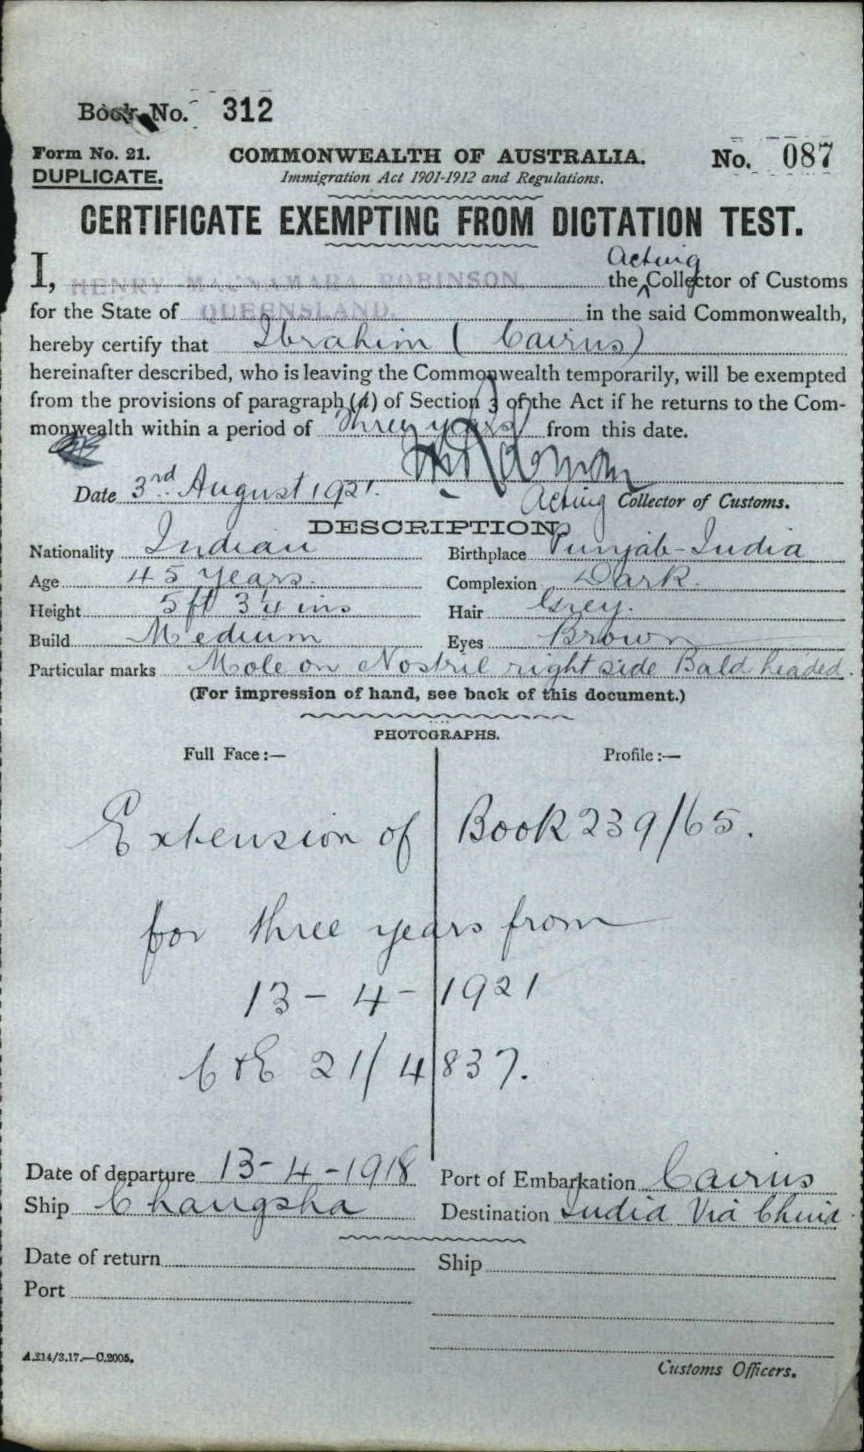 Book No. 312
Form No. 21. COMMONWEALTH OF AUSTRALIA. No. 087
DUPLICATE. Immigration Act 1901-1912 and Regulations.
CERTIFICATE EXEMPTING FROM DICTATION TEST.
Acting
I, HENRY MACNAMARA ROBINSON, the Collector of Customs
for the State of QUEENSLAND. in the said Commonwealth,
hereby certify that Ibrahim (Cairns)
hereinafter described, who is leaving the Commonwealth temporarily, will be exempted
from the provisions of paragraph (a) of Section 3 of the Act if he returns to the Com-
monwealth within a period of three years from this date.
Date 3rd August 1921. Acting Collector of Customs.
DESCRIPTION
Nationality Indian Birthplace Punjab-India
Age 45 years. Complexion Dark.
Height 5ft 3¼ ins Hair Grey.
Build Medium Eyes Brown
Particular marks Mole on Nostril right side Bald headed.
(For impression of hand, see back of this document.)
PHOTOGRAPHS.
Full Face:— Profile:—
Extension of Book 239/65.
for three years from
13-4-1921
C&E 21/4837.
Date of departure 13-4-1918 Port of Embarkation Cairns
Ship Changsha Destination India Via China.
Date of return Ship
Port
A.214/3.17.—C.2005.
Customs Officers.